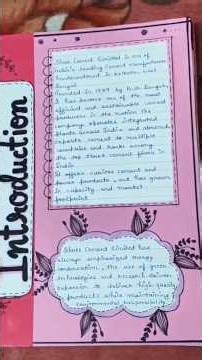 Introduction
Shree Cement Limited is one of
India's leading cement manufacturers
headquartered in Kolkata, West
Bengal.
Founded in 1979 by B.G. Bangur,
it has become one of the most
efficient and sustainable cement
producers in the nation. The
company operates integrated
plants across India and
cement to multiple
countries and ranks among
the top three cement firms in
India.
It offers various cement and
power products, and has grown
in capacity and market
footprint.
Shree Cement Limited has
always emphasized energy
conservation, the use of green
technologies and
expansion to deliver high quality
products while maintaining
environmental responsibility.